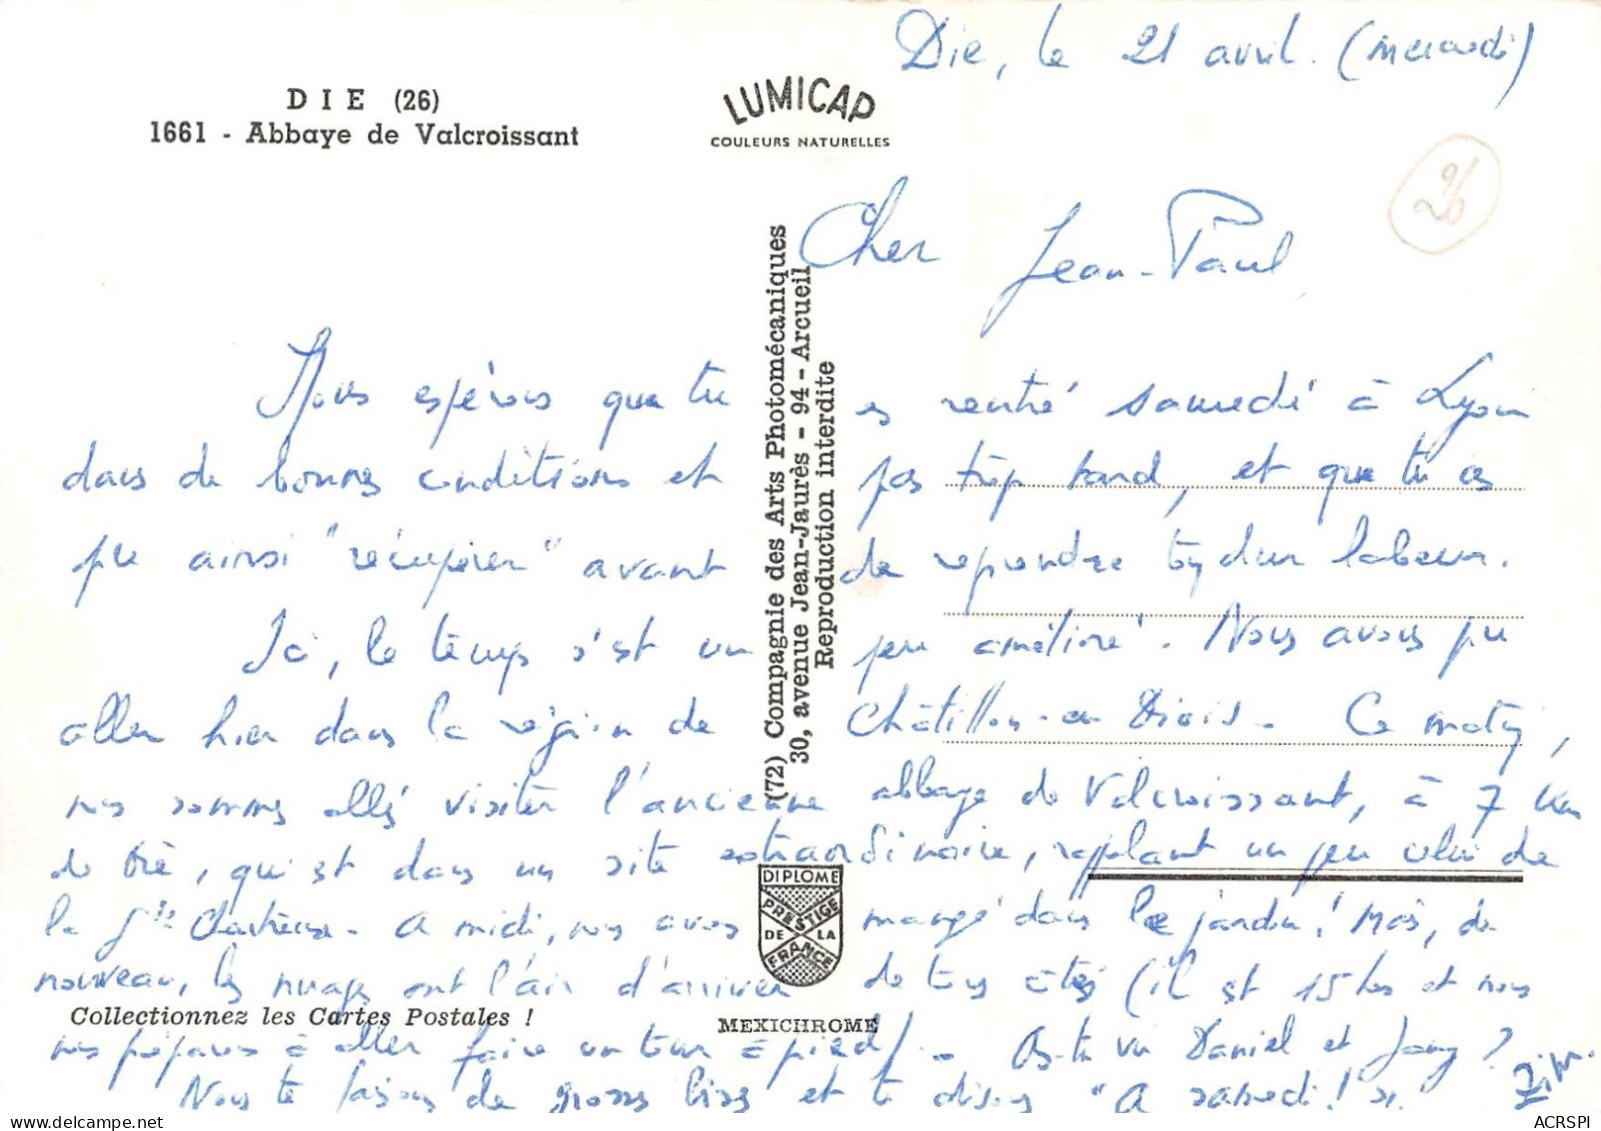 Die, le 21 avril. (mercredi)
DIE (26)
1661 - Abbaye de Valcroissant
LUMICAP
COULEURS NATURELLES
26
Cher Jean-Paul
Nous espérons que tu es rentré samedi à Lyon
dans de bonnes conditions et pas trop tard, et que tu as
pu ainsi "récupérer" avant de reprendre ton dur labeur.
Ici, le temps s'est un peu amélioré. Nous avons pu
aller hier dans la région de Châtillon-en Diois. Ce matin,
nous sommes allés visiter l'ancienne abbaye de Valcroissant, à 7 km
de Die, qui est dans un site extraordinaire, rappelant un peu celui de
la Gde Chartreuse. A midi, nous avons mangé dans le jardin! Mais, de
nouveau, les nuages ont l'air d'arriver de tous côtés (il est 15 hes et nous
nous préparons à aller faire un tour à pied). As-tu vu Daniel et ?
Nous te faisons de grosses bises et te disons "A samedi!".
(72) Compagnie des Arts Photomécaniques
30, avenue Jean-Jaurès - 94 - Arcueil
Reproduction interdite
DIPLOME
PRESTIGE
DE LA
FRANCE
Collectionnez les Cartes Postales !
MEXICHROME
ACRSPI